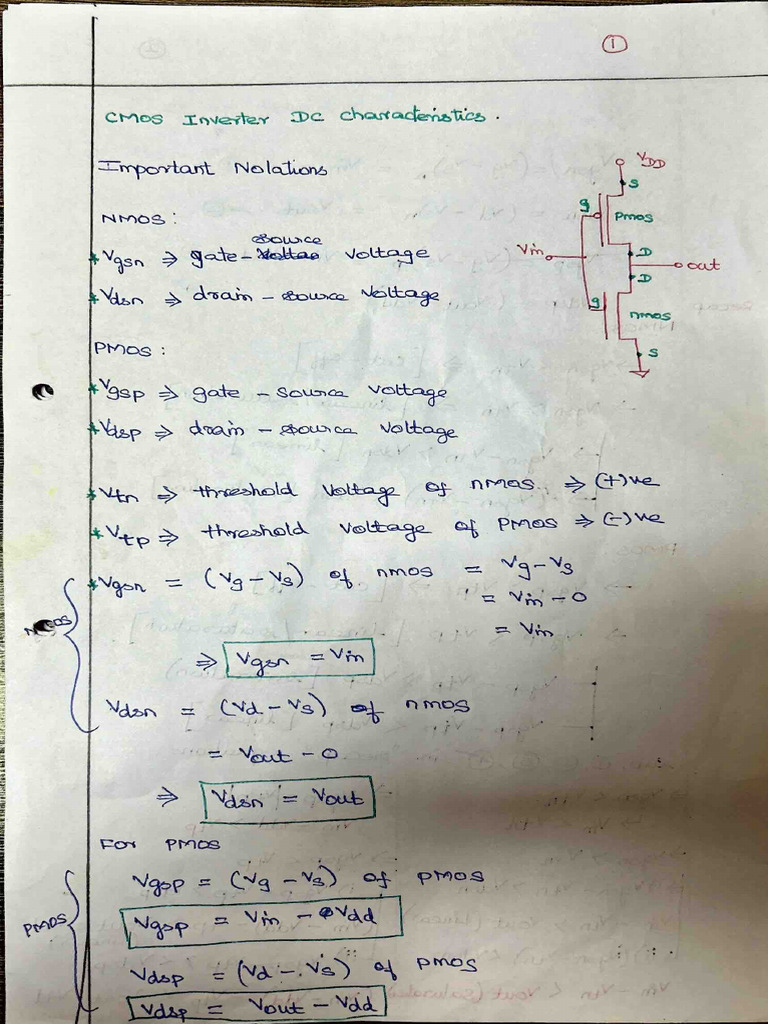 1
CMOS Inverter DC Characteristics.
Important Notations
VDD
S
g
PMOS
Vin
D
out
D
g
nmos
S
NMOS:
* Vgsn ⇒ gate - source voltage
* Vdsn ⇒ drain - source voltage
PMOS:
* Vgsp ⇒ gate - source voltage
* Vdsp ⇒ drain - source voltage
* Vtn ⇒ threshold voltage of nmos ⇒ (+)ve
* Vtp ⇒ threshold voltage of PMOS ⇒ (-)ve
* Vgsn = (Vg - Vs) of nmos = Vg - Vs
= Vin - 0
= Vin
⇒ Vgsn = Vin
Vdsn = (Vd - Vs) of nmos
= Vout - 0
⇒ Vdsn = Vout
For PMOS
Vgsp = (Vg - Vs) of pmos
PMOS
Vgsp = Vin - Vdd
Vdsp = (Vd - Vs) of pmos
Vdsp = Vout - Vdd